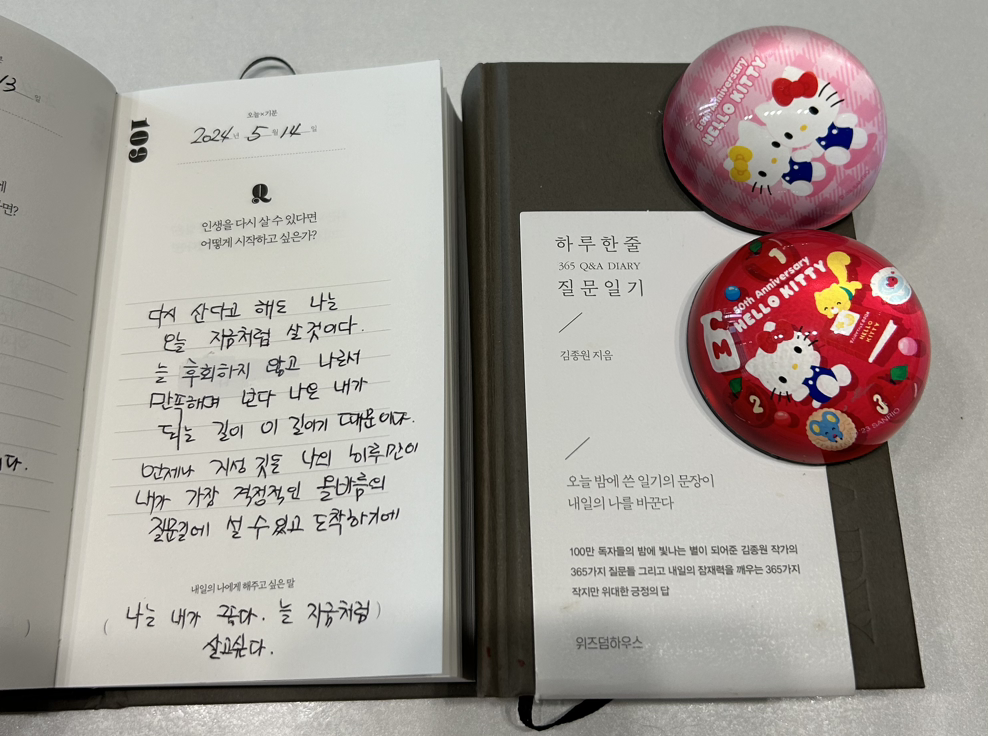 13 일
면?
다.
109
오늘×기분
2024년 5월 14일
Q
인생을 다시 살 수 있다면
어떻게 시작하고 싶은가?
다시 산다고 해도 나는
오늘 지금처럼 살 것이다.
늘 후회하지 않고 나로서
만족해하며 보다 나은 내가
되는 길이 이 길이기 때문이다.
언제나 지성 깃든 나의 하루만이
내가 가장 격정적인 올바름의
질문길에 설 수 있고 도착하기에
내일의 나에게 해주고 싶은 말
( 나는 내가 좋다. 늘 지금처럼 )
살고싶다.
하루 한 줄
365 Q&A DIARY
질문 일기
김종원 지음
오늘 밤에 쓴 일기의 문장이
내일의 나를 바꾼다
100만 독자들의 밤에 빛나는 별이 되어준 김종원 작가의
365가지 질문들 그리고 내일의 잠재력을 깨우는 365가지
작지만 위대한 긍정의 답
위즈덤하우스
50th Anniversary
HELLO KITTY
50th Anniversary
HELLO KITTY
1
HELLO
KITTY
2
3